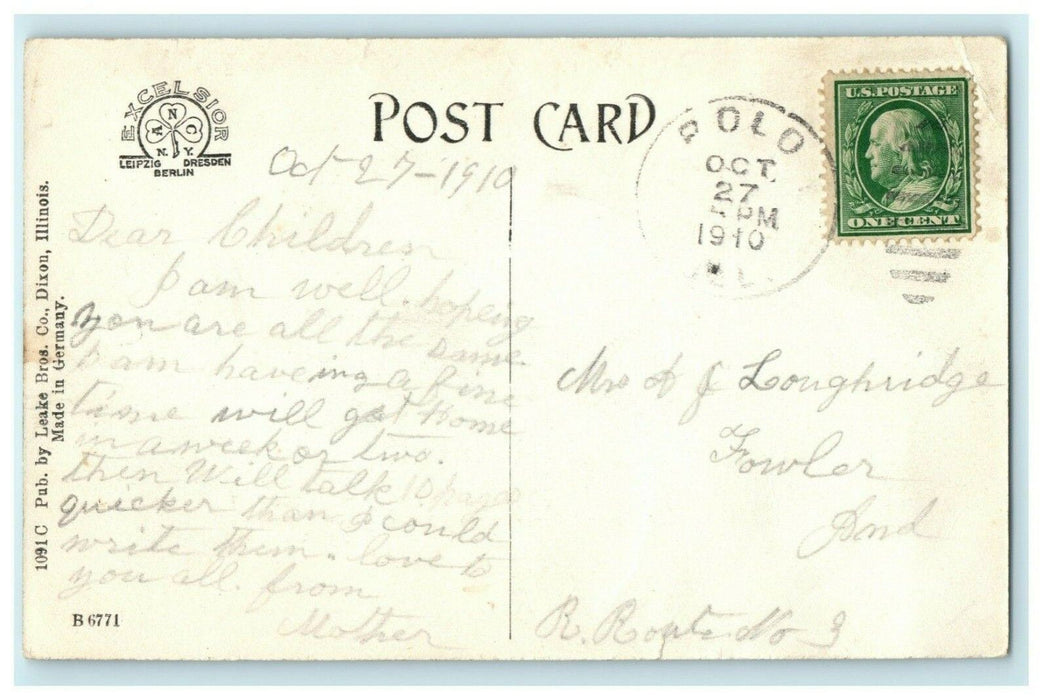 EXCELSIOR
ANC
N.Y.
LEIPZIG DRESDEN
BERLIN
POST CARD
POLO
OCT.
27
5 PM
1910
ILL.
U.S. POSTAGE
ONE CENT
1091 C Pub. by Leake Bros. Co., Dixon, Illinois.
Made in Germany.
Oct 27-1910
Dear Children
I am well. hopeing
you are all the same
I am haveing a fine
time will get home
in a week or two.
then will talk 10 pages
quicker than I could
write them. love to
you all. from
Mother
B 6771
Mrs A J Loughridge
Fowler
Ind
R. Route No 3